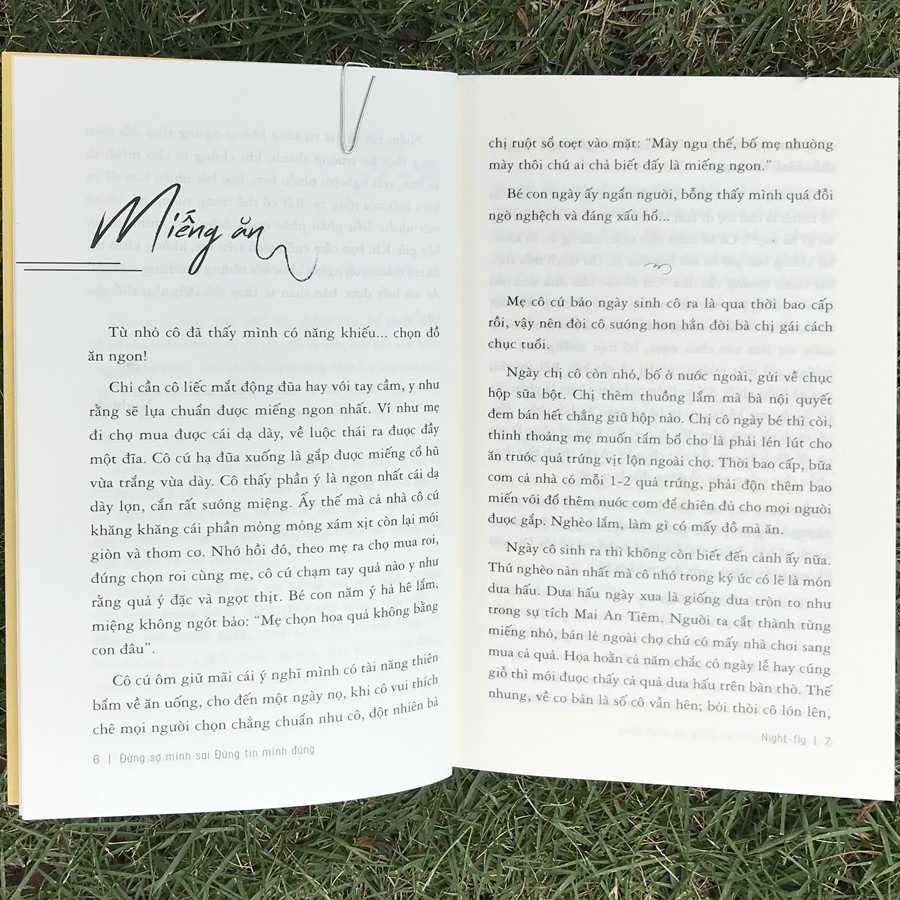 Miếng ăn
Từ nhỏ cô đã thấy mình có năng khiếu... chọn đồ
ăn ngon!
Chỉ cần cô liếc mắt động đũa hay với tay cầm, y như
rằng sẽ lựa chuẩn được miếng ngon nhất. Ví như mẹ
đi chợ mua được cái dạ dày, về luộc thái ra được đầy
một đĩa. Cô cứ hạ đũa xuống là gắp được miếng cổ hũ
vừa trắng vừa dày. Cô thấy phần ý là ngon nhất cái dạ
dày lợn, cắn rất sướng miệng. Ấy thế mà cả nhà cô cứ
khăng khăng cái phần mỏng mỏng xám xịt còn lại mới
giòn và thơm cơ. Nhớ hồi đó, theo mẹ ra chợ mua roi,
đúng chọn roi cùng mẹ, cô cứ chạm tay quả nào y như
rằng quả ý đặc và ngọt thịt. Bé con năm ý hả hê lắm,
miệng không ngớt bảo: “Mẹ chọn hoa quả không bằng
con đâu”.
Cô cứ ôm giữ mãi cái ý nghĩ mình có tài năng thiên
bẩm về ăn uống, cho đến một ngày nọ, khi cô vui thích
chê mọi người chọn chẳng chuẩn như cô, đột nhiên bà
6 | Đừng sợ mình sai Đừng tin mình đúng
chị ruột sổ toẹt vào mặt: “Mày ngu thế, bố mẹ nhường
mày thôi chứ ai chả biết đấy là miếng ngon.”
Bé con ngày ấy ngẩn người, bỗng thấy mình quá đỗi
ngờ nghệch và đáng xấu hổ...
Mẹ cô cứ bảo ngày sinh cô ra là qua thời bao cấp
rồi, vậy nên đời cô sướng hơn hẳn đời bà chị gái cách
chục tuổi.
Ngày chị cô còn nhỏ, bố ở nước ngoài, gửi về chục
hộp sữa bột. Chị thèm thuồng lắm mà bà nội quyết
đem bán hết chẳng giữ hộp nào. Chị cô ngày bé thì còi,
thỉnh thoảng mẹ muốn tẩm bổ cho là phải lén lút cho
ăn trước quả trứng vịt lộn ngoài chợ. Thời bao cấp, bữa
cơm cả nhà có mỗi 1-2 quả trứng, phải độn thêm bao
miến với đổ thêm nước cơm để chiên đủ cho mọi người
được gắp. Nghèo lắm, làm gì có mấy đồ mà ăn.
Ngày cô sinh ra thì không còn biết đến cảnh ấy nữa.
Thứ nghèo nàn nhất mà cô nhớ trong ký ức có lẽ là món
dưa hấu. Dưa hấu ngày xưa là giống dưa tròn to như
trong sự tích Mai An Tiêm. Người ta cắt thành từng
miếng nhỏ, bán lẻ ngoài chợ chứ có mấy nhà chơi sang
mua cả quả. Họa hoằn cả năm chắc có ngày lễ hay cúng
giỗ thì mới được thấy cả quả dưa hấu trên bàn thờ. Thế
nhưng, về cơ bản là số cô vẫn hên; bởi thời cô lớn lên,
Night-fly | 7